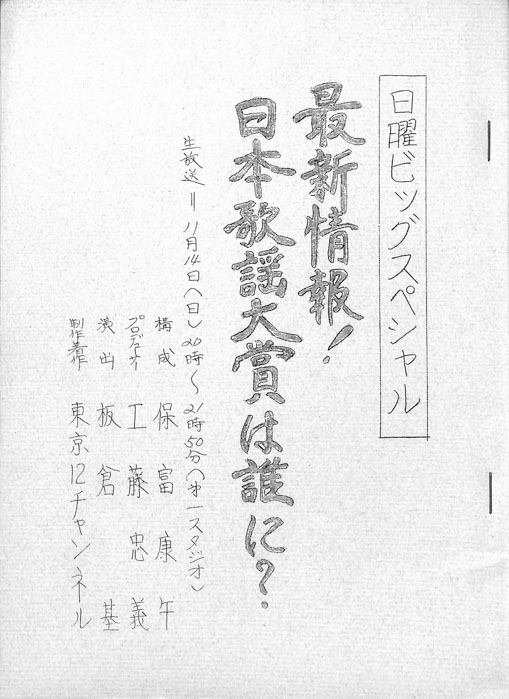 日曜ビッグスペシャル
最新情報!
日本歌謡大賞は誰に?
生放送=11月14日(日)20時〜21時50分(オ一スタジオ)
構成 保富康午
プロデューサー 工藤忠義
演出 板倉基
制作著作 東京12チャンネル